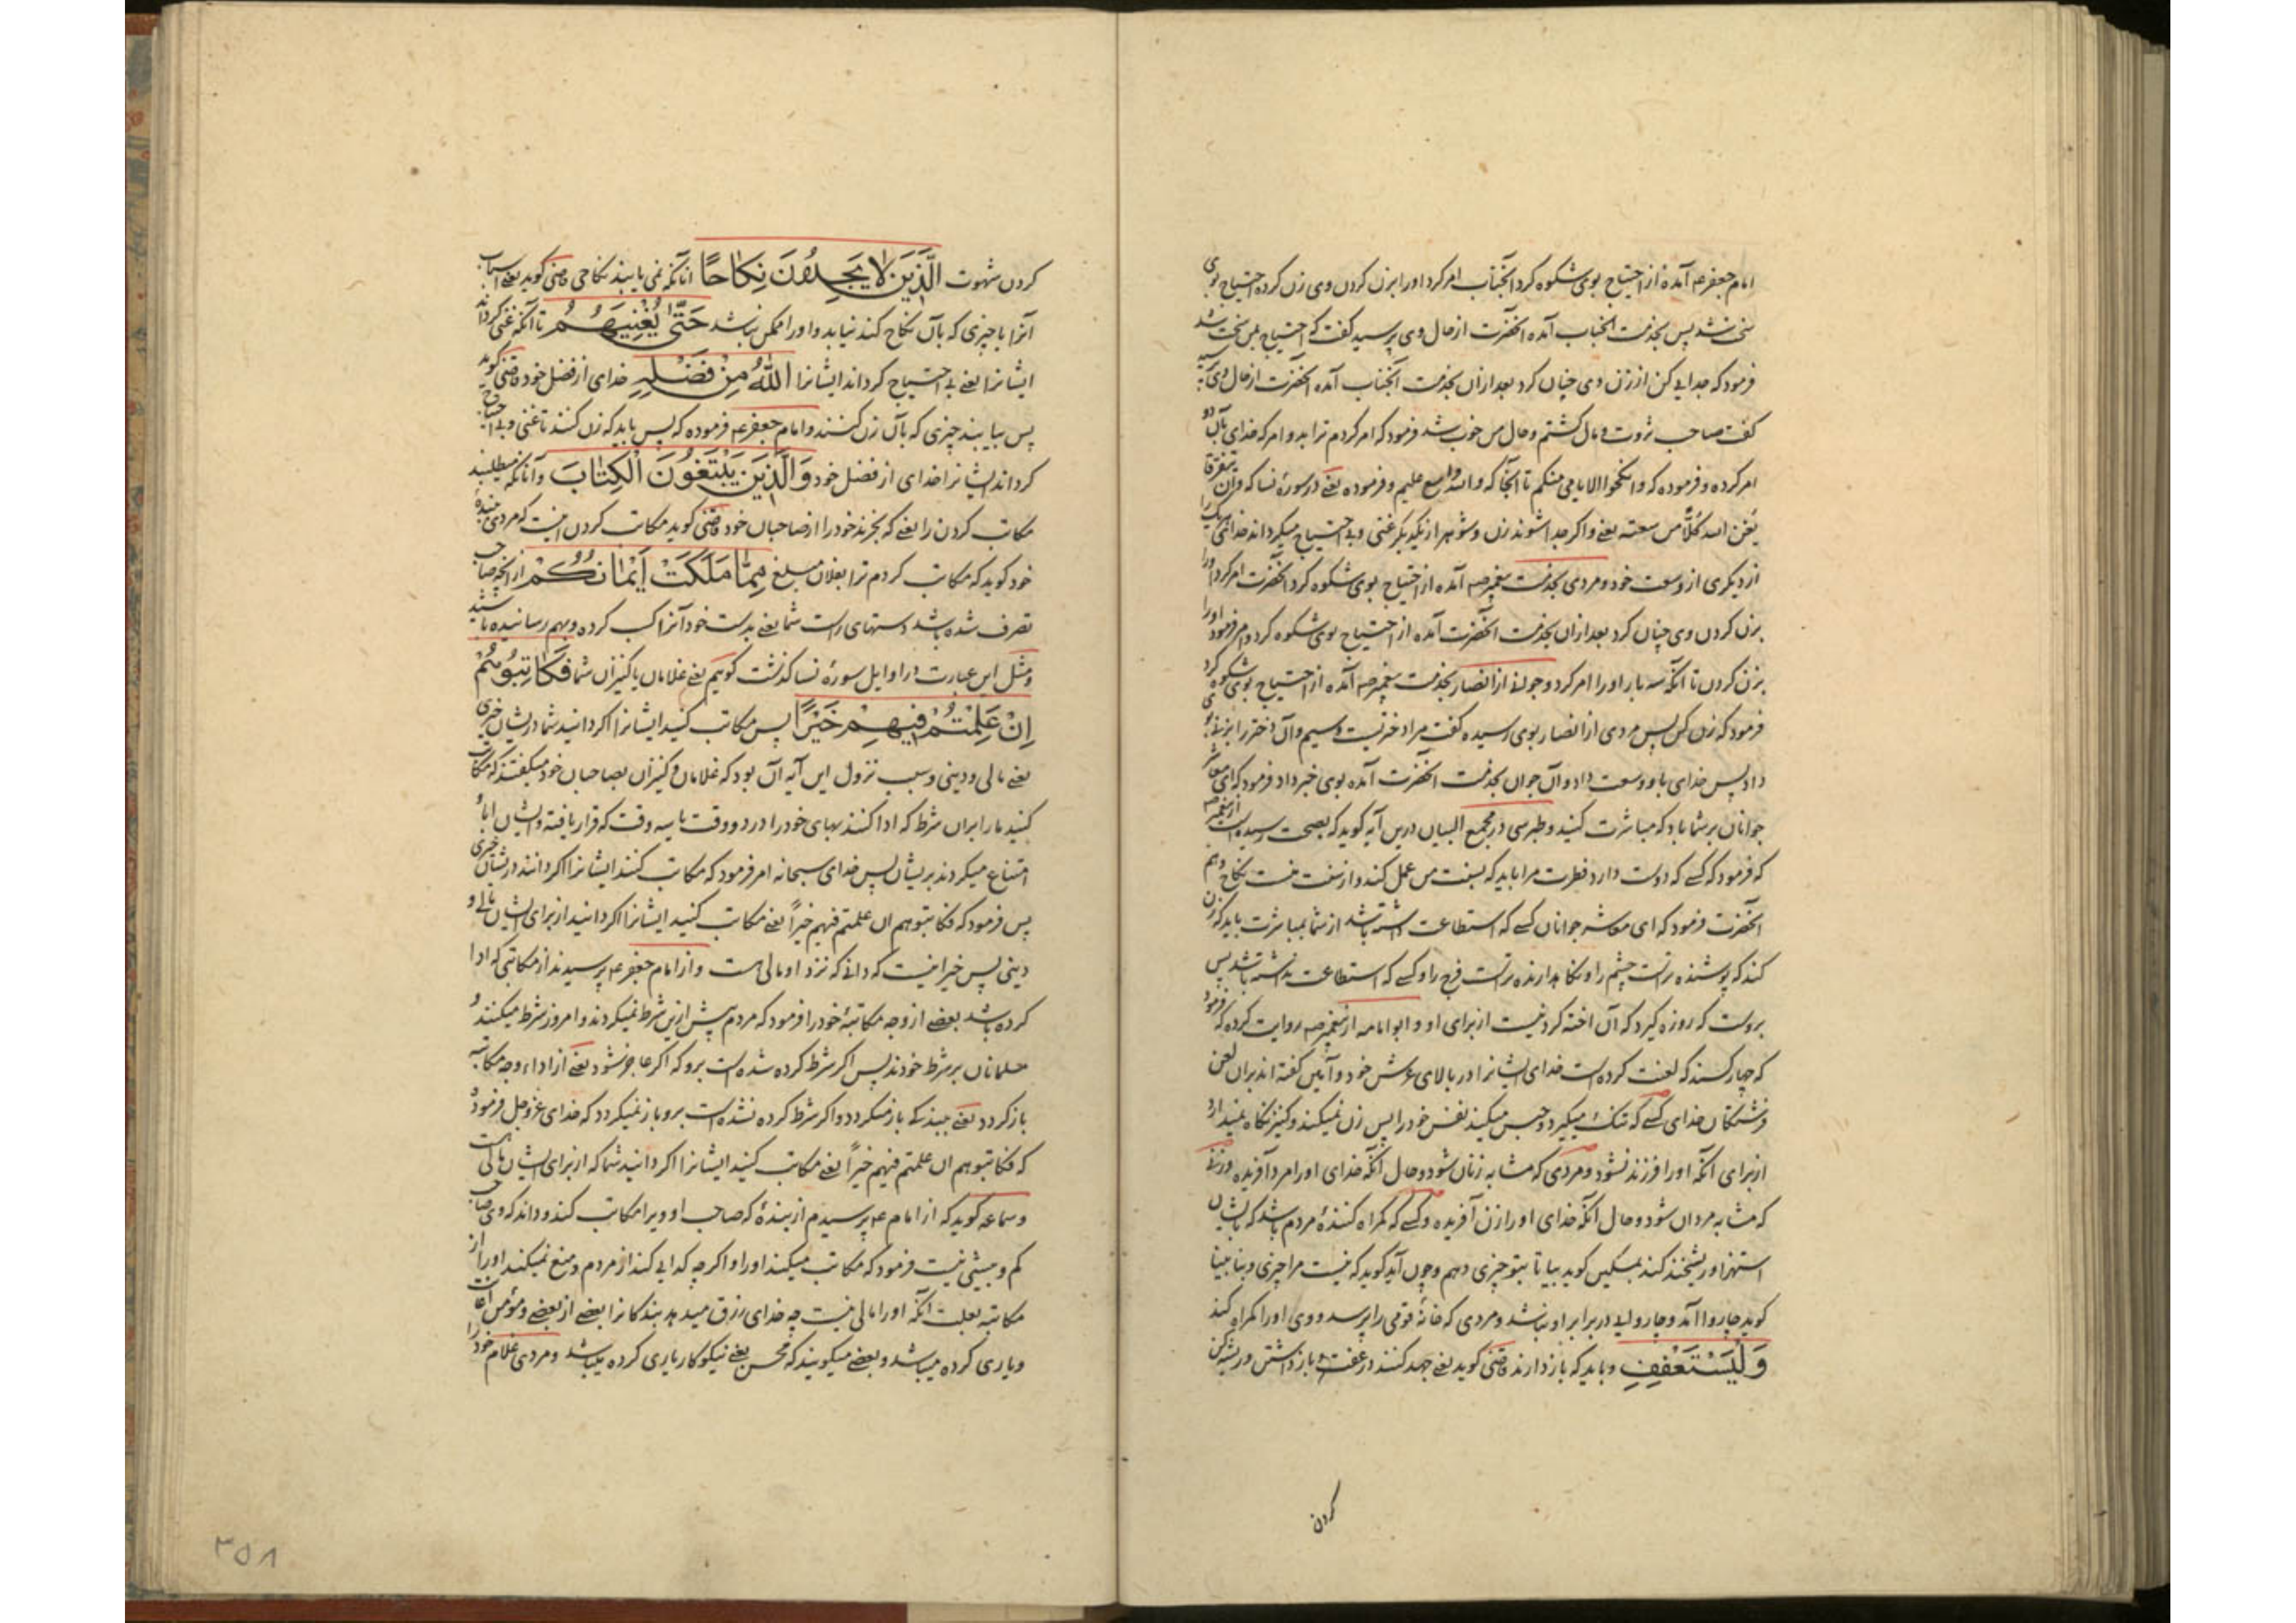 امام جعفر ع آمده از احتیاج بوی شکوه کرد آنجناب امر کرد او را بزن کردن وی زن کرده احتیاج بوی
سخت شد پس بخدمت آنجناب آمده آنحضرت از حال وی پرسید گفت که احتیاج بمن سخت شد
فرمود که جدایی کن از زن وی چنان کرد بعد از ان بخدمت آنجناب آمده آنحضرت از حال وی پرسید
گفت صاحب ثروت و مال گشتم و حال من خوب شد فرمود که امر کردم ترا بدو امر که خدای بآن دو
امر کرده و فرموده که وانکحوا الایامی منکم تا آنجا که والله واسع علیم و فرموده یعنی در سورهٔ نسا که وان یتفرقا
یغن الله کلًّا من سعته یعنی و اگر جدا شوند زن و شوهر از یکدیگر غنی و بی احتیاج میگرداند خدای هر یک را
از دیگری از وسعت خود و مردی بخدمت پیغمبر صه آمده از احتیاج بوی شکوه کرد آنحضرت امر کرد او را
بزن کردن وی چنان کرد بعد از ان بخدمت آنحضرت آمده از احتیاج بوی شکوه کرد و امر فرمود او را
بزن کردن تا آنکه سه بار او را امر کرد و جوانی از انصار بخدمت پیغمبر صه آمده از احتیاج بوی شکوه کرد
فرمود که زن کن پس مردی از انصار بوی رسیده گفت مرا دختریست وسیم و آن دختر را بزنی بوی
داد پس خدای باو وسعت داد و آن جوان بخدمت آنحضرت آمده بوی خبر داد فرمود که ای معاشر
جوانان بر شما باد که مباشرت کنید و طبرسی در مجمع البیان درین آیه گوید که بصحت رسیده است از پیغمبر صه
که فرمود که کسی که دوست دارد فطرت مرا باید که بسنت من عمل کند و از سنت منست نکاح و هم
آنحضرت فرمود که ای معاشر جوانان کسی که استطاعت داشته باشد از شما بمباشرت باید که زن
کند که پوشنده ترست چشم را و نگاهدارنده ترست فرج را و کسی که استطاعت نداشته باشد پس
بروست که روزه گیرد که آن اخته کردنیست از برای او و ابو امامه از پیغمبر صه روایت کرده که فرمود
که چهار کسند که لعنت کرده است خدای ایشانرا در بالای عرش خود و آمین گفته اند بران لعن
فرشتگان خدای کسی که تنگ میگیرد و حبس میکند نفس خود را پس زن نمیکند و کنیز نگاه نمیدارد
از برای آنکه او را فرزند نشود و مردی که مشابه زنان شود و حال آنکه خدای او را مرد آفریده و زنی
که مشابه مردان شود و حال آنکه خدای او را زن آفریده و کسی که گمراه کنندهٔ مردم باشد که بایشان
استهزا و ریشخند کند بمسکین گوید بیا تا بتو چیزی دهم و چون آید گوید که نیست مرا چیزی و بنا بینا
گوید چاروا آمد و چاروایی در برابر او نباشد و مردی که خانهٔ قومی را پرسد و وی او را گمراه کند
وَلْيَسْتَعْفِفِ و باید که باز دارند قاضی گوید یعنی جهد کنند در عفت و باز داشتن و ریشه کن
کردن
کردن شهوت الَّذِينَ لَا يَجِدُونَ نِكَاحًا آنانکه نمی یابند نکاحی قاضی گوید یعنی اسباب
آنرا یا چیزی که بآن نکاح کنند نیابد و او را ممکن نباشد حَتَّى يُغْنِيَهُمُ تا آنکه غنی گرداند
ایشانرا یعنی بی احتیاج گرداند ایشانرا اللَّهُ مِنْ فَضْلِهِ خدای از فضل خود قاضی گوید
پس بیابند چیزی که بآن زن کنند و امام جعفر ع فرموده که پس باید که زن کنند تا غنی و بی احتیاج
گرداند ایشانرا خدای از فضل خود وَالَّذِينَ يَبْتَغُونَ الْكِتَابَ و آنانکه میطلبند
مکاتب کردن را یعنی که بخرند خود را از صاحبان خود قاضی گوید مکاتب کردن اینست که مردی ببندهٔ
خود گوید که مکاتب کردم ترا بفلان مبلغ مِمَّا مَلَكَتْ أَيْمَانُكُمْ از آنچه صاحب
تصرف شده باشد دستهای راست شما یعنی بدست خود آنرا کسب کرده و بهم رسانیده باشید
و مثل این عبارت در اوایل سورهٔ نسا گذشت گوییم یعنی غلامان یا کنیزان شما فَكَاتِبُوهُمْ
إِنْ عَلِمْتُمْ فِيهِمْ خَيْرًا پس مکاتب کنید ایشانرا اگر دانید شما در ایشان خیری
یعنی مالی و دینی و سبب نزول این آیه آن بود که غلامان و کنیزان بصاحبان خود میگفتند که مکاتب
کنید ما را بران شرط که ادا کنند بهای خود را در دو وقت یا سه وقت که قرار یافته و ایشان ابا و
امتناع میکردند بریشان پس خدای سبحانه امر فرمود که مکاتب کنند ایشانرا اگر دانند در ایشان خیری
پس فرمود که فکاتبوهم ان علمتم فیهم خیراً یعنی مکاتب کنید ایشانرا اگر دانید از برای ایشان مالی و
دینی پس خیر اینست که دانی که نزد او مالی هست و از امام جعفر ع پرسیدند از مکاتبی که ادا
کرده باشد بعضی از وجه مکاتبهٔ خود را فرمود که مردم پیش ازین شرط نمیکردند و امروز شرط میکنند و
مسلمانان بر شرط خودند پس اگر شرط کرده شده است برو که اگر عاجز شود یعنی از اداء وجه مکاتبه
باز گردد یعنی ببندگی باز میگردد و اگر شرط کرده نشده است برو باز نمیگردد که خدای عز و جل فرمود
که فکاتبوهم ان علمتم فیهم خیراً یعنی مکاتب کنید ایشانرا اگر دانید شما که از برای ایشان مالی هست
و سماعه گوید که از امام ع پرسیدم از بندهٔ که صاحب او ویرا مکاتب کند و داند که وی صاحب
کم و بیشی نیست فرمود که مکاتب میکند او را و اگر چه گدایی کند از مردم و منع نمیکند او را از
مکاتبه بعلت آنکه او را مالی نیست چه خدای رزق میدهد بندگانرا بعضی از بعضی و مؤمن اعانت
و یاری کرده میباشد و بعضی میگویند که محسن یعنی نیکوکار یاری کرده میباشد و مردی غلام خود را
۳۵۸